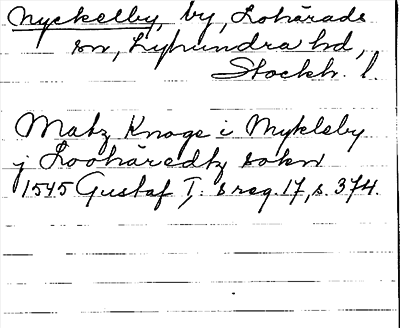 Nyckelby, by, Lohärads
sn, Lyhundra hd,
Stockh. l.
Matz Knogs i Nyklsby
j Loohäredtz sokn
1545 Gustaf I:s reg. 17, s. 374.